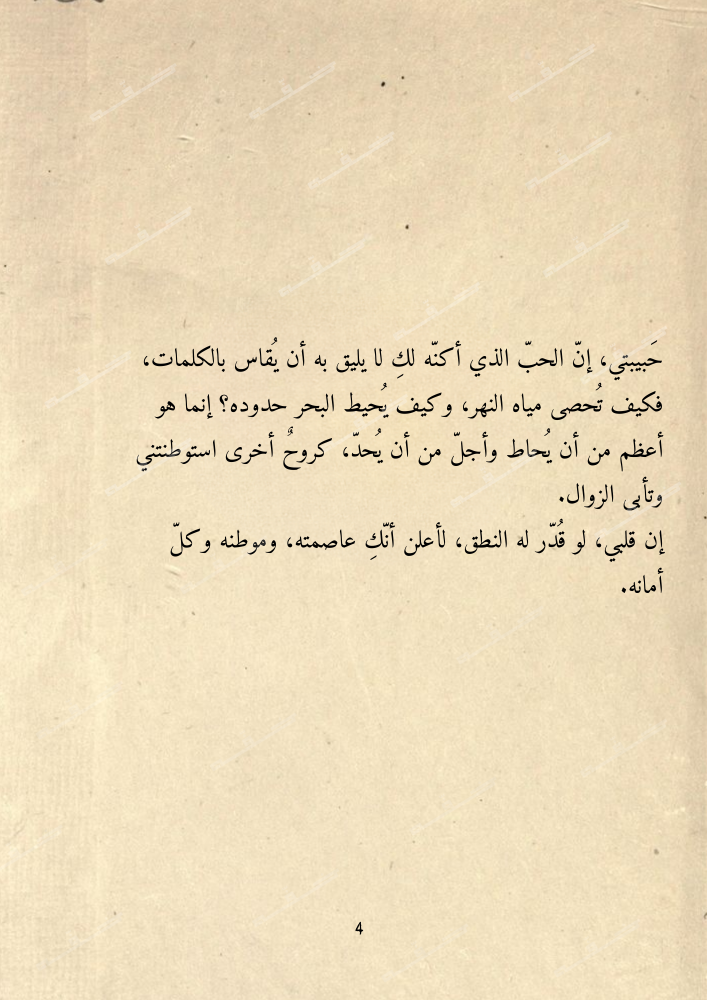 حَبيبتي، إنّ الحبّ الذي أكنّه لكِ لا يليق به أن يُقاس بالكلمات،
فكيف تُحصى مياه النهر، وكيف يُحيط البحر حدوده؟ إنما هو
أعظم من أن يُحاط وأجلّ من أن يُحدّ، كروحٌ أخرى استوطنتني
وتأبى الزوال.
إن قلبي، لو قُدّر له النطق، لأعلن أنّكِ عاصمته، وموطنه وكلّ
أمانه.
4